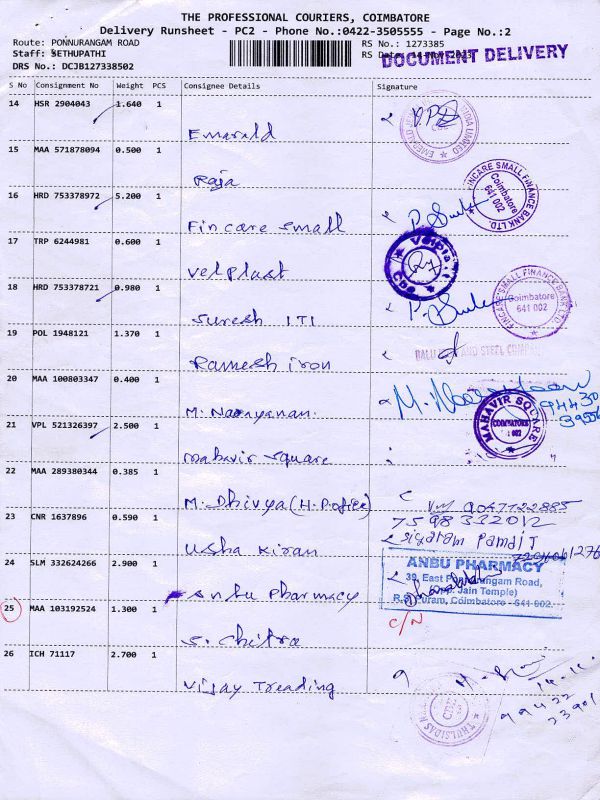 THE PROFESSIONAL COURIERS, COIMBATORE
Delivery Runsheet - PC2 - Phone No.:0422-3505555 - Page No.:2
Route: PONNURANGAM ROAD
RS No.: 1273385
Staff: SETHUPATHI
RS Da
DOCUMENT DELIVERY
DRS No.: DCJB127338502
S No Consignment No Weight PCS Consignee Details Signature
14 HSR 2904043 1.640 1
Emerald
15 MAA 571878094 0.500 1
Raja
FINCARE SMALL FINANCE BANK LTD
Coimbatore
641 002
16 HRD 753378972 5.200 1
Fincare small
17 TRP 6244981 0.600 1
Velplast
18 HRD 753378721 0.980 1
FINCARE SMALL FINANCE BANK LTD
Coimbatore
641 002
Suresh ITI
19 POL 1948121 1.370 1
Ramesh iron
AND STEEL
20 MAA 100803347 0.400 1
M. Narayanan.
21 VPL 521326397 2.500 1
MAHAVIR SQUARE
COIMBATORE
Mahavir square
22 MAA 289380344 0.385 1
M. Dhivya (H.P office)
9047722885
7598332012
23 CNR 1637896 0.590 1
Usha Kiran
Siyaram Pandit
24 SLM 332624266 2.900 1
ANBU PHARMACY
39, East Ponnurangam Road,
Jain Temple)
R.S. Puram, Coimbatore - 641 002.
Anbu Pharmacy
25 MAA 103192524 1.300 1
C/N
S. Chitra
26 ICH 71117 2.700 1
Vijay Treading
99422
23901